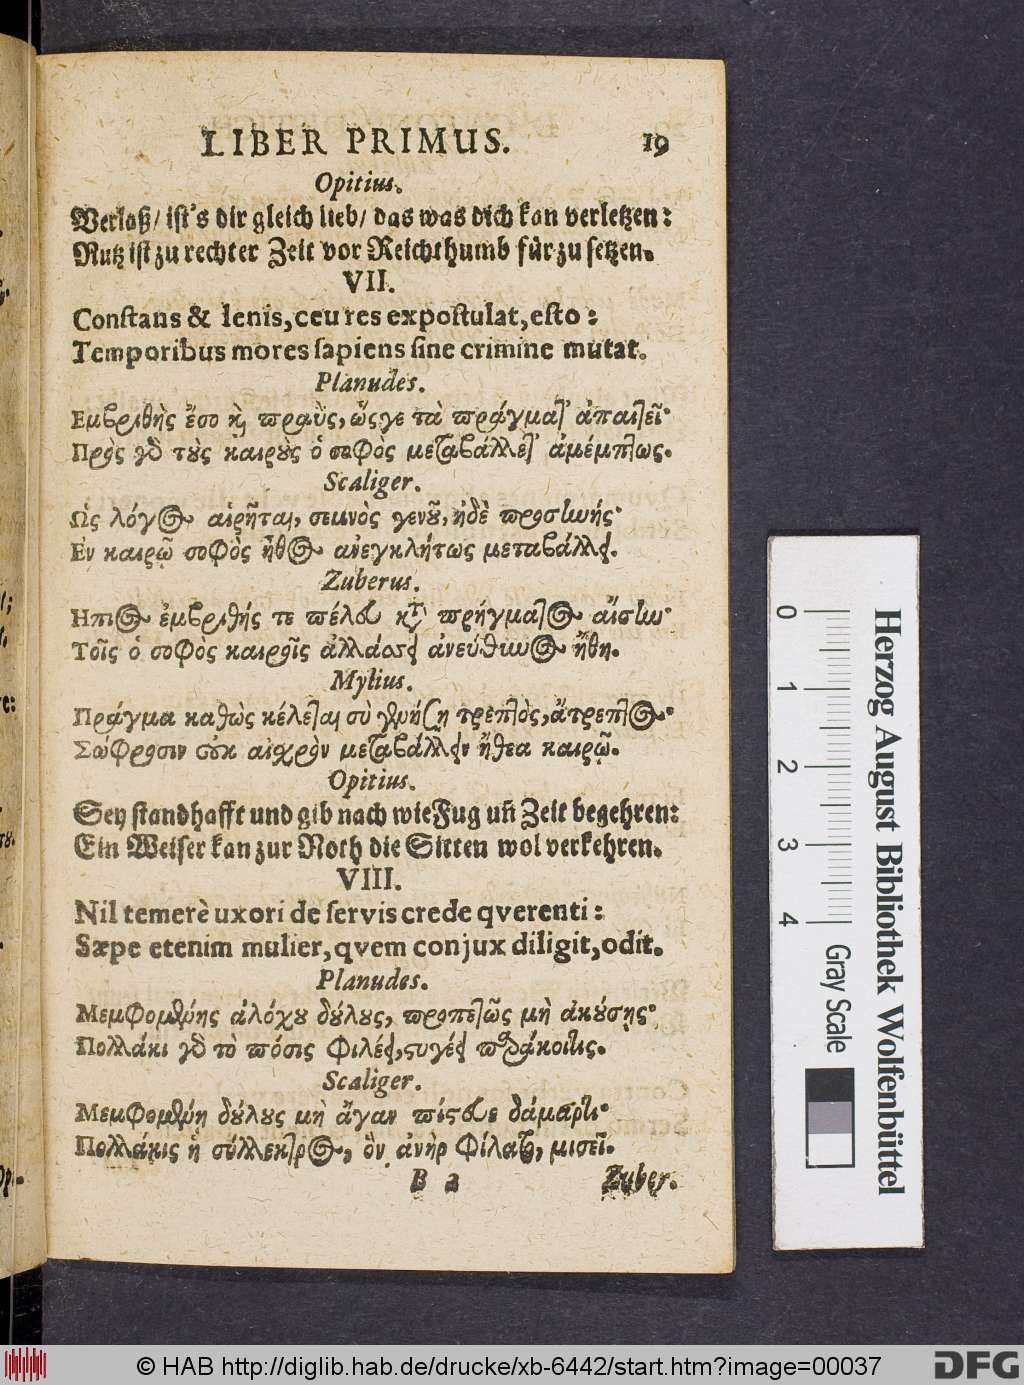 LIBER PRIMUS. 19
Opitius.
Verlaß/ ist's dir gleich lieb/ das was dich kan verletzen:
Nutz ist zu rechter Zeit vor Reichthumb für zu setzen.
VII.
Constans & lenis, ceu res expostulat, esto:
Temporibus mores sapiens sine crimine mutat.
Planudes.
Εμβριθὴς ἔσο κỳ πραῢς, ὥςγε τὰ πράγματ' ἀπαιτεῖ·
Πρὸς γὸ τοὺς καιροὺς ὁ σοφὸς μεταβάλλετ' ἀμέμπτως.
Scaliger.
Ὡς λόγος αἱρῆται, σεμνὸς γενοῦ, ἠδὲ προσηνής·
Εν καιρῷ σοφὸς ἦθος ανεγκλήτως μεταβάλλει.
Zuberus.
Ηπιος ἐμβριθής τε πέλευ κτ̀ πρήγματος αἴσην·
Τοῖς ὁ σοφὸς καιροῖς ἀλλάσσει ἀνεύθυνος ἤθη.
Mylius.
Πρᾶγμα καθὼς κέλεται σὺ χρήζῃ τρεπτὸς, ἄτρεπτος·
Σώφροσιν οὐκ αἰχρὸν μεταβάλλειν ἤθεα καιρῷ.
Opitius.
Sey standhafft und gib nach wie Fug uñ Zeit begehren:
Ein Weiser kan zur Noth die Sitten wol verkehren.
VIII.
Nil temerè uxori de servis crede qverenti:
Sæpe etenim mulier, qvem conjux diligit, odit.
Planudes.
Μεμφομένης ἀλόχου δούλους, προπετῶς μὴ ἀκούσῃς·
Πολλάκι γὸ τὸ πόσις φιλέει, στυγέει παράκοιτις.
Scaliger.
Μεμφομένῃ δούλους μὴ ἄγαν πίστευε δάμαρτι·
Πολλάκις ἡ σύλλεκτρος, ὃν ἀνὴρ φίλατο, μισεῖ.
B 2 Zuber.
0 1 2 3 4
Gray Scale
Herzog August Bibliothek Wolfenbüttel
© HAB http://diglib.hab.de/drucke/xb-6442/start.htm?image=00037
DFG